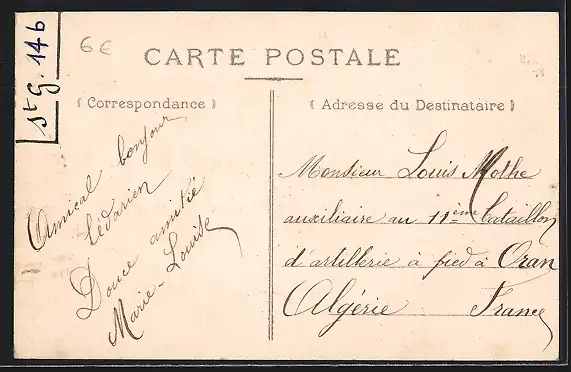 St G. 146
6€
CARTE POSTALE
( Correspondance )
( Adresse du Destinataire )
Amical bonjour
Lédarien
Douce amitié
Marie-Louise
Monsieur Louis Mothe
auxiliaire au 11ème bataillon
d'artillerie à pied à Oran
Algérie France